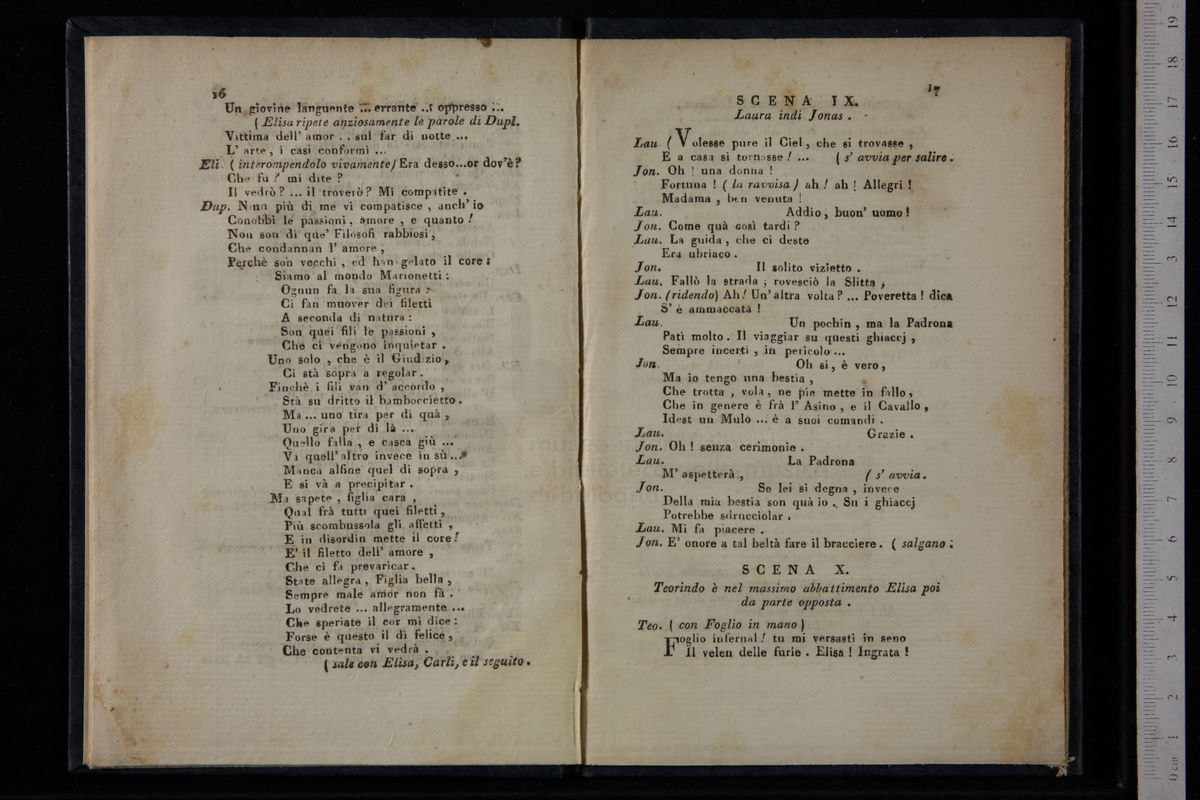 16
Un giovine languente ... errante ... oppresso ...
( Elisa ripete anziosamente le parole di Dupl.
Vittima dell' amor . . sul far di notte ...
L' arte , i casi conformi ...
Eli. ( interompendolo vivamente) Era desso...or dov'è?
Che fu ? mi dite ?
Il vedrò ? ... il troverò ? Mi compatite .
Dup. Niuno più di me vi compatisce , anch' io
Conobbi le passioni , amore , e quanto !
Non son di que' Filosofi rabbiosi ,
Che condannan l' amore ,
Perchè son vecchi , ed han gelato il core :
Siamo al mondo Marionetti :
Ognun fa la sua figura :
Ci fan muover dei filetti
A seconda di natura :
Son quei fili le passioni ,
Che ci vengono inquietar .
Uno solo , che è il Giudizio ,
Ci stà sopra a regolar .
Finchè i fili van d' accordo ,
Stà su dritto il bamborcietto .
Ma ... uno tira per di quà ,
Uno gira per di là ...
Quello falla , e casca giù ...
Va quell' altro invece in sù ...
Manca alfine quel di sopra ,
E si và a precipitar .
Ma sapete , figlia cara ,
Qual frà tutti quei filetti ,
Più scombussola gli affetti ,
E in disordin mette il core !
E' il filetto dell' amore ,
Che ci fa prevaricar .
State allegra , Figlia bella ,
Sempre male amor non fà .
Lo vedrete ... allegramente ...
Che speriate il cor mi dice :
Forse è questo il dì felice ,
Che contenta vi vedrà .
( sale con Elisa, Carli, e il seguito .
17
SCENA IX.
Laura indi Jonas .
Lau. ( Volesse pure il Ciel , che si trovasse ,
E a casa si tornasse ! ... ( s' avvia per salire .
Jon. Oh ! una donna !
Fortuna ! ( la ravvisa ) ah ! ah ! Allegri !
Madama , ben venuta !
Lau. Addio, buon' uomo !
Jon. Come quà così tardi ?
Lau. La guida , che ci deste
Era ubriaco .
Jon. Il solito vizietto .
Lau. Fallò la strada ; rovesciò la Slitta ,
Jon. (ridendo) Ah ! Un' altra volta ? ... Poveretta ! dica
S' è ammaccata !
Lau. Un pochin , ma la Padrona
Patì molto . Il viaggiar su questi ghiaccj ,
Sempre incerti , in pericolo ...
Jon. Oh si , è vero ,
Ma io tengo una bestia ,
Che trotta , vola , ne pie mette in fallo ,
Che in genere è frà l' Asino , e il Cavallo ,
Idest un Mulo ... è a suoi comandi .
Lau. Grazie .
Jon. Oh ! senza cerimonie .
Lau. La Padrona
M' aspetterà , ( s' avvia .
Jon. Se lei si degna , invece
Della mia bestia son quà io . Su i ghiaccj
Potrebbe sdrucciolar .
Lau. Mi fa piacere .
Jon. E' onore a tal beltà fare il bracciere . ( salgano :
SCENA X.
Teorindo è nel massimo abbattimento Elisa poi
da parte opposta .
Teo. ( con Foglio in mano )
Foglio infernal ! tu mi versasti in seno
Il velen delle furie . Elisa ! Ingrata !